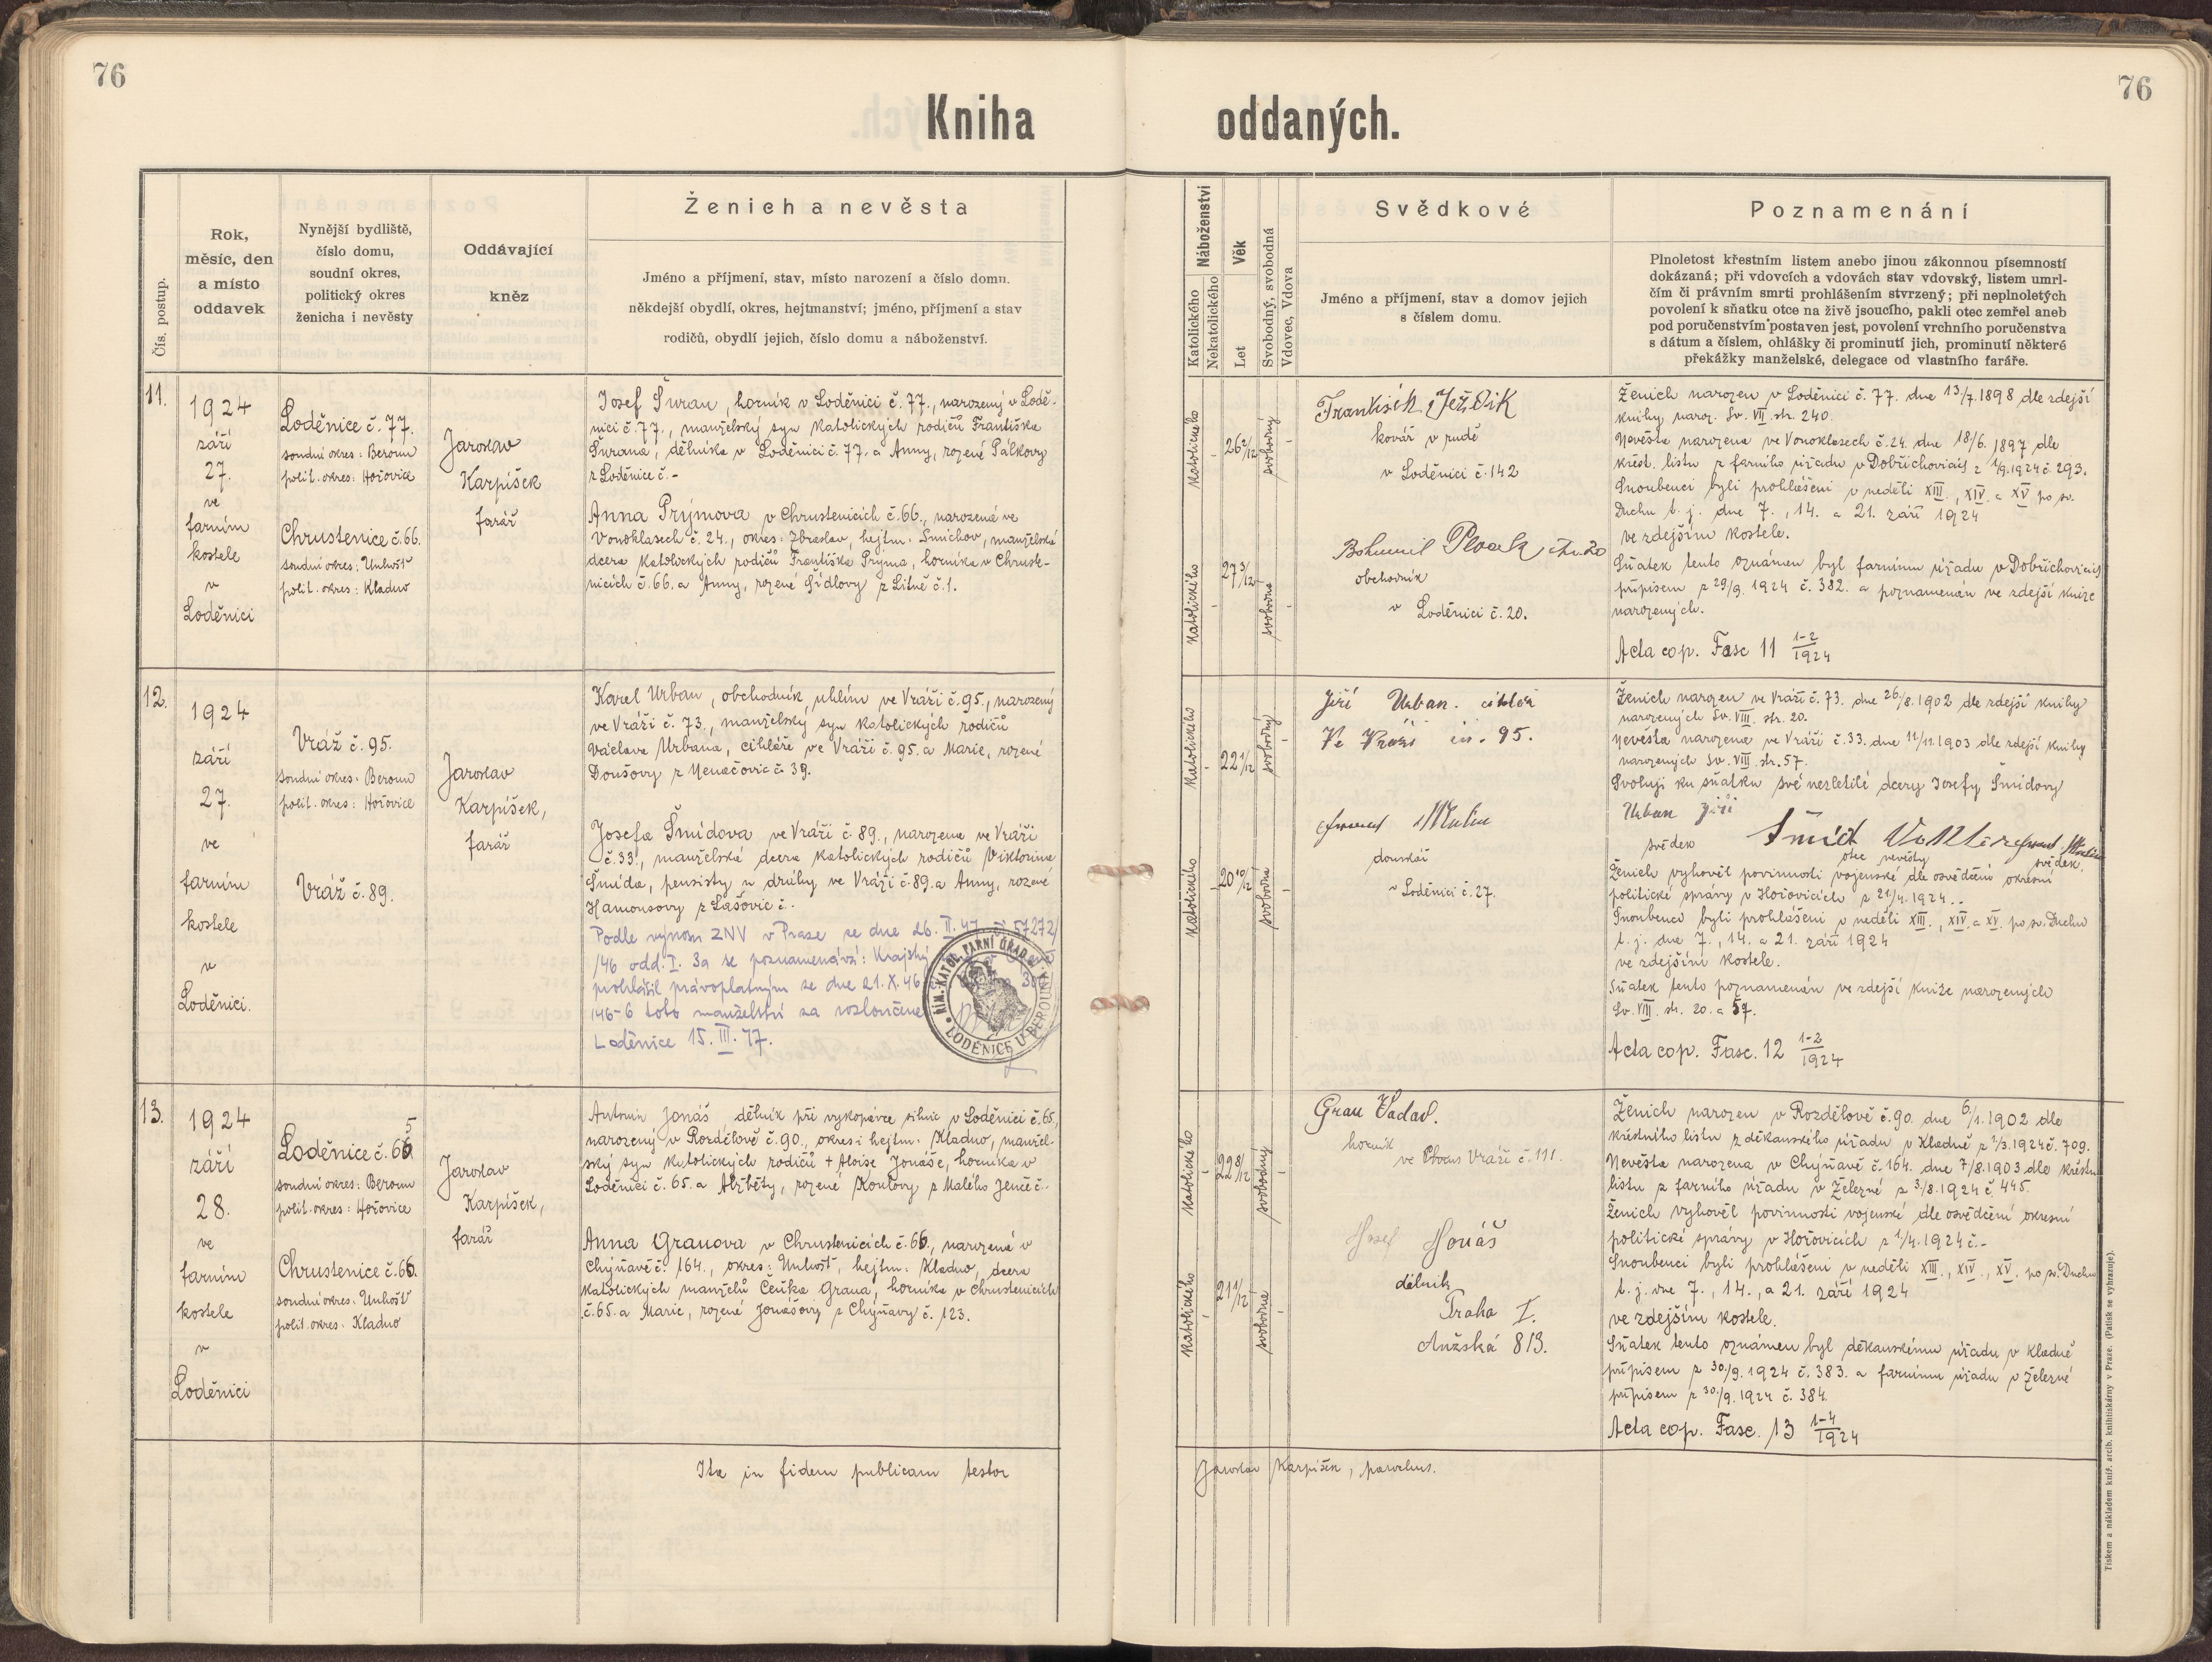 76
76
Kniha oddaných.
Čís. postup.
Rok,
měsíc, den
a místo
oddavek
Nynější bydliště,
číslo domu,
soudní okres,
politický okres
ženicha i nevěsty
Oddávající
kněz
Ženich a nevěsta
Jméno a příjmení, stav, místo narození a číslo domu.
někdejší obydlí, okres, hejtmanství; jméno, příjmení a stav
rodičů, obydlí jejich, číslo domu a náboženství.
Náboženství
Katolického
Nekatolického
Věk
Let
Svobodný, svobodná
Vdovec, Vdova
Svědkové
Jméno a příjmení, stav a domov jejich
s číslem domu.
Poznamenání
Plnoletost křestním listem anebo jinou zákonnou písemností
dokázaná; při vdovcích a vdovách stav vdovský, listem umrl-
čím či právním smrti prohlášením stvrzený; při neplnoletých
povolení k sňatku otce na živě jsoucího, pakli otec zemřel aneb
pod poručenstvím postaven jest, povolení vrchního poručenstva
s dátum a číslem, ohlášky či prominutí jich, prominutí některé
překážky manželské, delegace od vlastního faráře.
11.
1924
září
27.
ve
farním
kostele
v
Loděnici
Loděnice č. 77.
soudní okres: Beroun
polit. okres: Hořovice
Chrustenice č. 66.
soudní okres: Unhošť
polit. okres: Kladno
Jaroslav
Karpíšek
farář
Josef Šuran, horník v Loděnici č. 77., narozený v Lodě-
nici č. 77., manželský syn katolických rodičů Františka
Šurana, dělníka v Loděnici č. 77. a Anny, rozené Pálkovy
z Loděnice č. -
Anna Prýmova v Chrustenicích č. 66., narozená ve
Vonoklasech č. 24., okres: Zbraslav, hejtm. Smíchov, manželská
dcera katolických rodičů Františka Prýma, horníka v Chruste-
nicích č. 66. a Anny, rozené Šídlovy z Litně č. 1.
katolického
26 2/12
svobodný
katolického
27 3/12
svobodna
František Ježdik
kovář v rudě
v Loděnici č. 142
Bohumil
obchodník
v Loděnici č. 20.
Ženich narozen v Loděnici č. 77. dne 13/7. 1898 dle zdejší
knihy naroz. Sv. VII. str. 240.
Nevěsta narozena ve Vonoklasech č. 24. dne 18/6. 1897 dle
křest. listu z farního úřadu v Dobřichovicích z 1/9. 1924 č. 293.
Snoubenci byli prohlášeni v neděli XIII., XIV. a XV po sv.
Duchu t. j. dne 7., 14. a 21. září 1924
ve zdejším kostele.
Sňatek tento oznámen byl farnímu úřadu v Dobřichovicích
přípisem z 29/9. 1924 č. 382. a poznamenán ve zdejší knize
narozených.
Acta cop. Fasc 11 1-2/1924
12.
1924
září
27.
ve
farním
kostele
v
Loděnici.
Vráž č. 95.
soudní okres: Beroun
polit. okres: Hořovice
Vráž č. 89.
Jaroslav
Karpíšek,
farář
Karel Urban, obchodník uhlím ve Vráži č. 95., narozený
ve Vráži č. 73., manželský syn katolických rodičů
Václava Urbana, cihláře ve Vráži č. 95. a Marie, rozené
Doušovy z Nenačovic č. 39.
Josefa Šmídova ve Vráži č. 89., narozena ve Vráži
č. 33., manželská dcera katolických rodičů Viktorina
Šmída, pensisty u dráhy ve Vráži č. 89. a Anny, rozené
Hamousovy z Lašovic č. -
Podle výnosu ZNV v Praze ze dne 26. II. 47. č. 57272/
/46 odd. I. 3a se poznamenává: Krajský
prohlásil právoplatným ze dne 21. X. 46
146-6 toto manželství za rozloučené
Loděnice 15. III. 47.
ŘÍM.-KATOL. FARNÍ ÚŘAD V LODĚNICI U BEROUNA
katolického
22 1/12
svobodný
katolického
20 10/12
svobodna
Jiří Urban. cihlář
Ve Vráži čis. 95.
domkář
v Loděnici č. 27.
Ženich narozen ve Vráži č. 73. dne 26./8. 1902 dle zdejší knihy
narozených Sv. VIII. str. 20.
Nevěsta narozena ve Vráži č. 33. dne 11/11. 1903 dle zdejší knihy
narozených Sv. VIII. str. 57.
Svoluji ku sňatku své nezletilé dcery Josefy Šmídovy
Urban Jiří
svědek
Šmíd
otec nevěsty
svědek.
Ženich vyhověl povinnosti vojenské dle osvědčení okresní
politické správy v Hořovicích z 21/4. 1924. -
Snoubenci byli prohlášeni v neděli XIII., XIV. a XV. po sv. Duchu
t. j. dne 7., 14. a 21. září 1924
ve zdejším kostele.
Sňatek tento poznamenán ve zdejší knize narozených
Sv. VIII. str. 20. a 57.
Acta cop. Fasc. 12 1-2/1924
13.
1924
září
28.
ve
farním
kostele
v
Loděnici
Loděnice č. 65
soudní okres: Beroun
polit. okres: Hořovice
Chrustenice č. 65.
soudní okres: Unhošť
polit. okres: Kladno
Jaroslav
Karpíšek,
farář
Antonín Jonáš dělník při vykopávce silnic v Loděnici č. 65,
narozený v Rozdělově č. 90., okres i hejtm. Kladno, manžel-
ský syn katolických rodičů + Aloise Jonáše, horníka v
Loděnici č. 65. a Alžběty, rozené Koulovy z Malého Jenče č. -
Anna Granova v Chrustenicích č. 65., narozená v
Chýňavě č. 164., okres: Unhošť, hejtm. Kladno, dcera
katolických manželů Čeňka Grana, horníka v Chrustenicích
č. 65. a Marie, rozené Jonášovy z Chýňavy č. 123.
katolického
22 8/12
svobodný
katolického
21 1/12
svobodna
horník
ve Vráži č. 111.
Josef Jonáš
dělník
Praha I.
813.
Ženich narozen v Rozdělově č. 90. dne 6./1. 1902 dle
křestního listu z děkanského úřadu v Kladně z 2/3. 1924 č. 709.
Nevěsta narozena v Chýňavě č. 164. dne 7/8. 1903 dle křestn.
listu z farního úřadu v Železné z 3/8. 1924 č. 445.
Ženich vyhověl povinnosti vojenské dle osvědčení okresní
politické správy v Hořovicích z 1/4. 1924 č. -
Snoubenci byli prohlášeni v neděli XIII., XIV., XV. po sv. Duchu
t. j. dne 7., 14., a 21. září 1924
ve zdejším kostele.
Sňatek tento oznámen byl děkanskému úřadu v Kladně
přípisem z 30./9. 1924 č. 383. a farnímu úřadu v Železné
přípisem z 30./9. 1924 č. 384.
Acta cop. Fasc. 13 1-4/1924
Ita in fidem publicam testor
Jaroslav Karpíšek, parochus.
Tiskem a nákladem kníž. arcib. knihtiskárny v Praze. (Patisk se vyhrazuje).